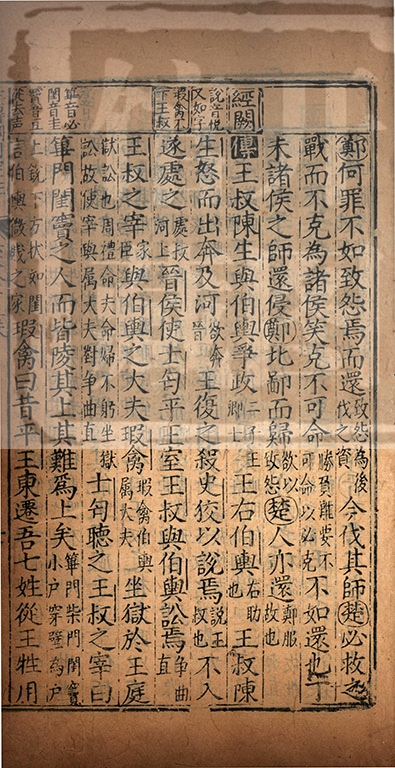 鄭何罪不如致怨焉而還致怨為後伐之資今伐其師楚必救之
戰而不克為諸侯笑克不可命勝負難要不可命以必克不如還也丁
未諸侯之師還侵鄭北鄙而歸欲以致怨楚人亦還鄭服故也
經闕
傳王叔陳生與伯輿爭政二子王卿士王右伯輿右助也王叔陳
說音悅又如字
生怒而出奔及河欲奔晉王復之殺史狡以說焉說王叔也不入
瑕禽不下王叔
遂處之處叔河上晉侯使士匄平王室王叔與伯輿訟焉爭曲直
王叔之宰家臣與伯輿之大夫瑕禽瑕禽伯輿属大夫坐獄於王庭
獄訟也周禮命夫命婦不躬坐獄訟故使宰與属大夫對爭曲直士匄聽之王叔之宰曰
篳音必閨音圭竇音豆從去声
篳門閨竇之人而皆陵其上其難爲上矣篳門柴門閨竇小户穿壁爲户
上銳下方狀如閨言伯輿微賤之家瑕禽曰昔平王東遷吾七姓從王牲用